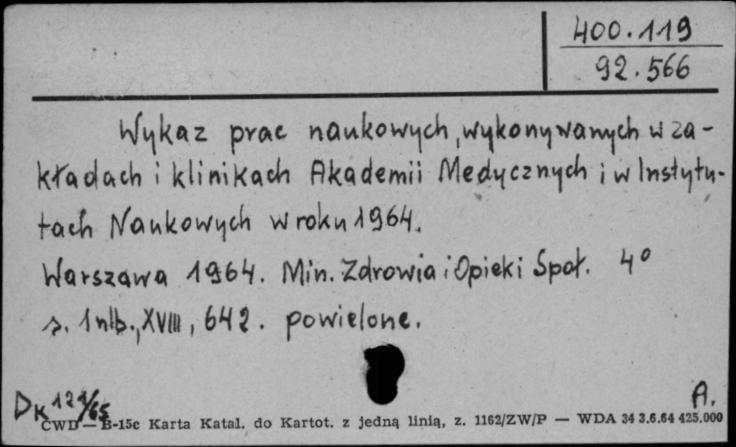 400.119
92.566
Wykaz prac naukowych, wykonywanych w za-
kładach i klinikach Akademii Medycznych i w Instytu-
tach Naukowych w roku 1964.
Warszawa 1964. Min. Zdrowia i Opieki Społ. 4°
s. 1 nlb., XVIII, 642. powielone.
A.
CWD — B-15c Karta Katal. do Kartot. z jedną linią, z. 1162/ZW/P — WDA 34 3.6.64 425.000